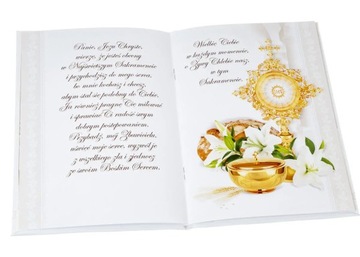 Panie, Jezu Chryste,
wierzę, że jesteś obecny
w Najświętszym Sakramencie
i przychodzisz do mego serca,
bo mnie kochasz i chcesz,
abym stał się podobny do Ciebie.
Ja również pragnę Cię miłować
i sprawiać Ci radość swym
dobrym postępowaniem.
Przybądź, mój Zbawicielu,
uświęć moje serce, wyzwól je
z wszelkiego zła i zjednocz
ze swoim Boskim Sercem.
Wielbię Ciebie
w każdym momencie,
o Żywy Chlebie nasz,
w tym
Sakramencie.